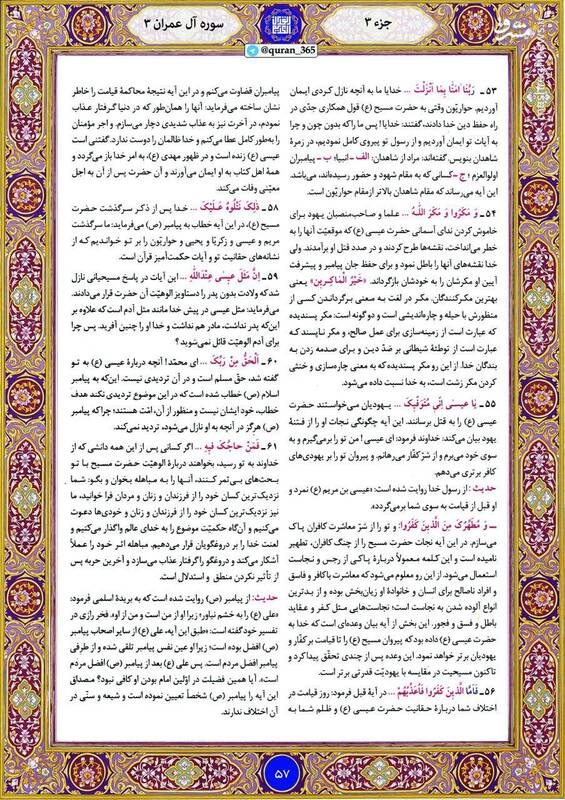 جزء ۳
سوره آل عمران ۳
مشرق
@quran_365
۵۳ ـ رَبَّنا امَنّا بِما اَنْزَلْتَ ... خدایا ما به آنچه نازل کردی ایمان
آوردیم. حواریّون وقتی به حضرت مسیح (ع) قول همکاری جدّی در
راه حفظ دین خدا دادند، گفتند: خدایا! پس ما را که بدون چون و چرا
به آیات تو ایمان آوردیم و از رسول تو پیروی کامل نمودیم، در زمرهٔ
شاهدان بنویس. گفته‌اند: مراد از شاهدان: الف ـ انبیا؛ ب ـ پیامبران
اولوالعزم؛ ج ـ کسانی که به مقام شهود و حضور رسیده‌اند، می‌باشد.
این آیه می‌رساند که مقام شاهدان بالاتر از مقام حواریّون است.
۵۴ ـ وَ مَکَرُوا وَ مَکَرَ اللّٰهُ ... علما و صاحب‌منصبان یهود برای
خاموش کردن ندای آسمانی حضرت عیسی (ع) که موقعیّت آنها را به
خطر می‌انداخت، نقشه‌ها طرح کردند و در صدد قتل او برآمدند. ولی
خدا نقشه‌های آنها را باطل نمود و برای حفظ جان پیامبر و پیشرفت
آیین او مکرشان را به خودشان بازگرداند. «خَیْرُ الْماکِرینَ» یعنی
بهترین مکرکنندگان. مکر در لغت به معنی برگرداندن کسی از
منظورش با حیله و چاره‌اندیشی است و دو گونه است: مکر پسندیده
که عبارت است از زمینه‌سازی برای عمل صالح، و مکر ناپسند که
عبارت است از توطئهٔ شیطانی بر ضدّ دین و برای صدمه زدن به
بندگان خدا. از این رو مکر پسندیده که به معنی چاره‌سازی و خنثی
کردن مکر زشت است، به خدا نسبت داده می‌شود.
۵۵ ـ یا عیسی اِنّی مُتَوَفّیکَ ... یهودیان می‌خواستند حضرت
عیسی (ع) را به قتل برسانند. این آیه چگونگی نجات او را از فتنهٔ
یهود بیان می‌کند: خداوند فرمود: ای عیسی! من تو را برمی‌گیرم و به
سوی خود می‌برم و از شرّ کفّار می‌رهانم. و پیروان تو را بر یهودی‌های
کافر برتری می‌دهم.
حدیث: از رسول خدا روایت شده است: «عیسی بن مریم (ع) نمرد و
او قبل از قیامت به سوی شما برمی‌گردد».
ــ وَ مُطَهِّرُکَ مِنَ الَّذینَ کَفَرُوا: و تو را از شرّ معاشرت کافران پاک
می‌سازم. در این آیه نجات حضرت مسیح را از چنگ کافران، تطهیر
نامیده است و این کلمه معمولاً دربارهٔ پاکی از رجس و نجاست
استعمال می‌شود. از این رو معلوم می‌شود که معاشرت با کافر و فاسق
و افراد ناصالح برای انسان و خانوادهٔ او زیان‌بخش بوده و از بدترین
انواع آلوده شدن به نجاست است؛ نجاست‌هایی مثل کفر و عقاید
باطل و فسق و فجور. این بخش از آیه بیان وعده‌ای است که خدا به
حضرت عیسی (ع) داده بود که پیروان مسیح را تا قیامت بر کفّار و
یهودیان برتر خواهد نمود. این وعده پس از چندی تحقّق پیدا کرد و
تاکنون مسیحیت در مقایسه با یهودیّت قدرتی برتر است.
۵۶ ـ فَاَمَّا الَّذینَ کَفَرُوا فَاُعَذِّبُهُمْ ... در آیهٔ قبل فرمود: روز قیامت در
اختلاف شما دربارهٔ حقانیت حضرت عیسی (ع) و ظلم شما به
پیامبران قضاوت می‌کنم و در این آیه نتیجهٔ محاکمهٔ قیامت را خاطر
نشان ساخته می‌فرماید: آنها را همان‌طور که در دنیا گرفتار عذاب
نمودم، در آخرت نیز به عذاب شدیدی دچار می‌سازم. و اجر مؤمنان
را به‌طور کامل عطا می‌کنم و خدا ظالمان را دوست ندارد. گفتنی است
عیسی (ع) زنده است و در ظهور مهدی (ع)، به امر خدا باز می‌گردد و
همهٔ اهل کتاب به او ایمان می‌آورند و آن حضرت پس از آن به اجل
معیّنی وفات می‌کند.
۵۸ ـ ذٰلِکَ نَتْلُوهُ عَلَیْکَ ... خدا پس از ذکر سرگذشت حضرت
مسیح (ع)، در این آیه خطاب به پیامبر (ص) می‌فرماید: ما سرگذشت
مریم و عیسی و زکریّا و یحیی و حواریّون را بر تو خواندیم که از
نشانه‌های حقانیت تو و آیات حکمت‌آمیز قرآن است.
۵۹ ـ اِنَّ مَثَلَ عیسٰی عِنْدَاللّٰهِ ... این آیات در پاسخ مسیحیانی نازل
شد که ولادت بدون پدر را دستاویز الوهیّت آن حضرت قرار می‌دادند.
می‌فرماید: مثل عیسی در پیش خدا مانند مثل آدم است که علاوه بر
این‌که پدر نداشت، مادر هم نداشت و خدا او را چنین آفرید. پس چرا
برای آدم الوهیّت قائل نمی‌شوید؟
۶۰ ـ اَلْحَقُّ مِنْ رَبِّکَ ... ای محمّد! آنچه دربارهٔ عیسی (ع) به تو
گفته شد، حقّ مسلم است و در آن تردیدی نیست. این‌که به پیامبر
اسلام (ص) خطاب شده است که در این موضوع تردیدی نکند هدف
خطاب، خود ایشان نیست و منظور از آن، امّت هستند؛ چرا که پیامبر
(ص) هرگز در آنچه به او نازل می‌شود، تردید نمی‌کند.
۶۱ ـ فَمَنْ حاجَّکَ فیهِ ... اگر کسانی پس از این همه دانشی که از
خداوند به تو رسید، بخواهند دربارهٔ الوهیّت حضرت مسیح با تو
بحث‌های بی‌ثمر کنند، آنها را به مباهله بخوان و بگو: شما
نزدیک‌ترین کسان خود را از فرزندان و زنان و مردان فرا خوانید، ما
نیز نزدیک‌ترین کسان خود را از فرزندان و زنان و خودی‌ها دعوت
می‌کنیم و آن‌گاه حکمیّت موضوع را به خدای عالم واگذار می‌کنیم و
لعنت خدا را بر دروغگویان قرار می‌دهیم. مباهله اثر خود را عملاً
آشکار می‌کند و دروغگو را گرفتار عذاب می‌سازد و آخرین حربه پس
از تأثیر نکردن منطق و استدلال است.
حدیث: از پیامبر (ص) روایت شده است که به بریدهٔ اسلمی فرمود:
«علی (ع) را به خشم نیاور؛ زیرا او از من است و من از اود. فخر رازی در
تفسیر خود گفته است: «طبق این آیه، علی (ع) از سایر اصحاب پیامبر
(ص) افضل بوده است؛ زیرا او عین نفس پیامبر تلقی شده و از طرفی
پیامبر افضل مردم است. پس علی (ع) بعد از پیامبر (ص) افضل مردم
است». آیا همین فضیلت در اوّلین امام بودن او کافی نبود؟ مصداق
این آیه را پیامبر (ص) شخصاً تعیین نموده است و شیعه و سنّی در
آن اختلاف ندارند.
۵۷